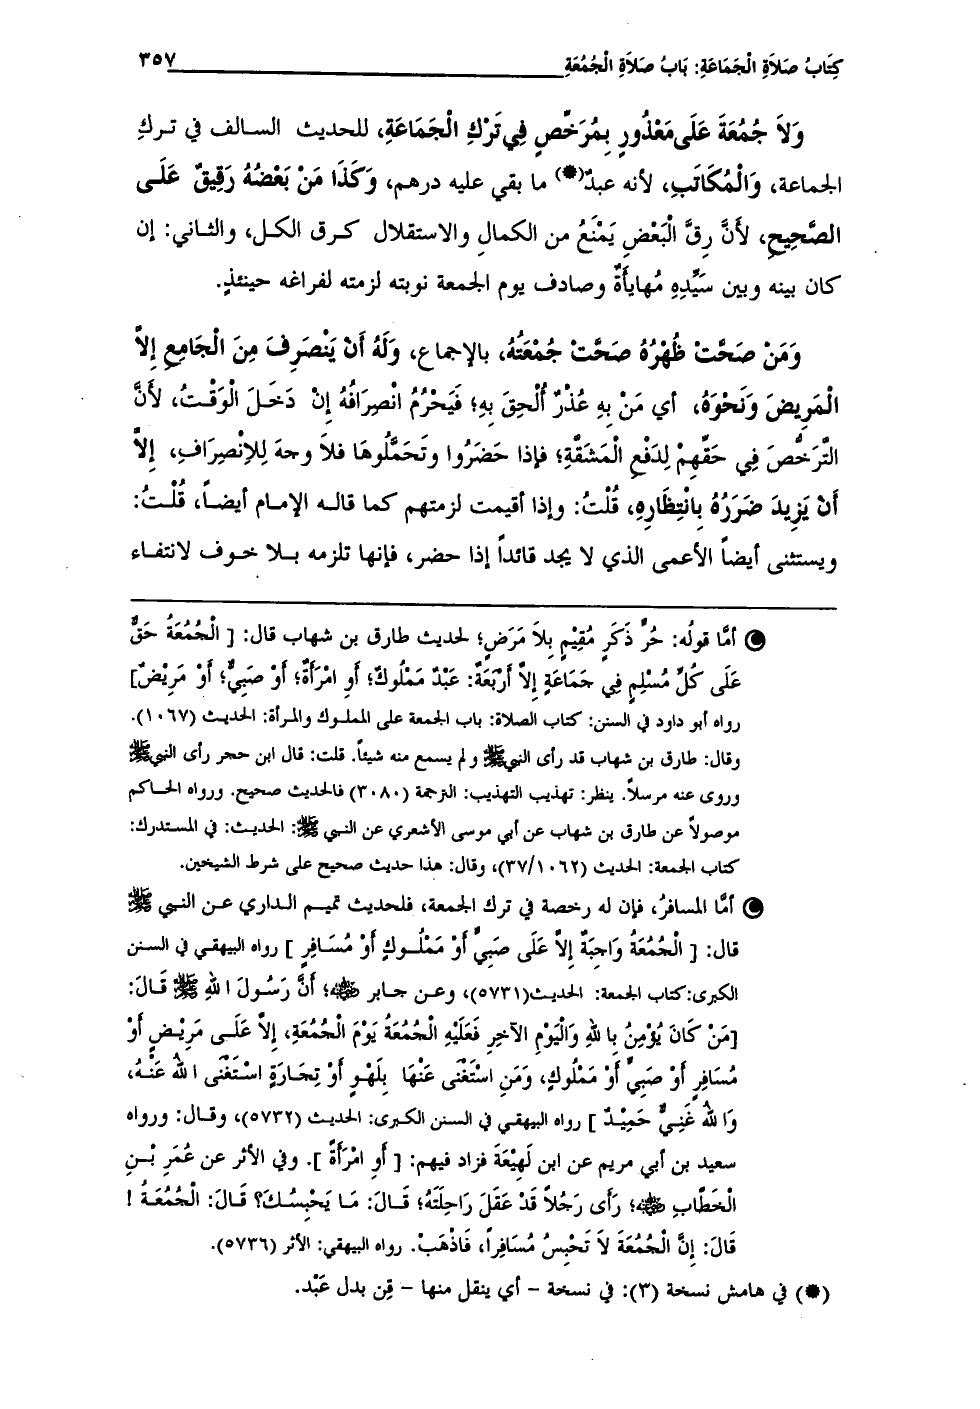 كِتَابُ صَلاَةِ الْجَمَاعَةِ: بَابُ صَلاَةِ الْجُمُعَةِ ٣٥٧
وَلاَ جُمُعَةَ عَلَى مَعْذُورٍ بِمُرَخِّصٍ فِي تَرْكِ الْجَمَاعَةِ، للحديث السالف في تركِ
الجماعة، وَالْمُكَاتَبِ، لأنه عبدٌ(*) ما بقي عليه درهم، وَكَذَا مَنْ بَعْضُهُ رَقِيقٌ عَلَى
الصَّحِيحِ، لأَنَّ رِقَّ الْبَعْضِ يَمْنَعُ من الكمال والاستقلال كرق الكل، والثاني: إن
كان بينه وبين سَيِّدِهِ مُهايأَةٌ وصادف يوم الجمعة نوبته لزمته لفراغه حينئذٍ.
وَمَنْ صَحَّتْ ظُهْرُهُ صَحَّتْ جُمْعَتُهُ، بالإجماع، وَلَهُ أَنْ يَنْصَرِفَ مِنَ الْجَامِعِ إِلاَّ
الْمَرِيضَ وَنَحْوَهُ، أي مَنْ بِهِ عُذْرٌ أُلْحِقَ بِهِ؛ فَيَحْرُمُ انْصِرَافُهُ إِنْ دَخَلَ الْوَقْتُ، لأَنَّ
التَّرَخُّصَ فِي حَقِّهِمْ لِدَفْعِ الْمَشَقَّةِ؛ فإذا حَضَرُوا وتَحَمَّلُوهَا فلاَ وجهَ لِلإِنْصِرَافِ، إِلاَّ
أَنْ يَزِيدَ ضَرَرُهُ بِانْتِظَارِهِ، قُلْتُ: وإذا أقيمت لزمتهم كما قاله الإمام أيضاً، قُلْتُ:
ويستثنى أيضاً الأعمى الذي لا يجد قائداً إذا حضر، فإنها تلزمه بلا خوف لانتفاء
أمَّا قولُه: حُرٍّ ذَكَرٍ مُقِيْمٍ بِلاَ مَرَضٍ؛ لحديث طارق بن شهاب قال: [ الْجُمُعَةُ حَقٌّ
عَلَى كُلِّ مُسْلِمٍ فِي جَمَاعَةٍ إِلاَّ أَرْبَعَةٌ: عَبْدٌ مَمْلُوكٌ؛ أَوِ امْرَأَةٌ؛ أَوْ صَبِيٌّ؛ أَوْ مَرِيْضٌ]
رواه أبو داود في السنن: كتاب الصلاة: باب الجمعة على المملوك والمرأة: الحديث (١٠٦٧).
وقال: طارق بن شهاب قد رأى النبيﷺ ولم يسمع منه شيئاً. قلت: قال ابن حجر رأى النبيﷺ
وروى عنه مرسلاً. ينظر: تهذيب التهذيب: الترجمة (٣٠٨٠) فالحديث صحيح. ورواه الحاكم
موصولاً عن طارق بن شهاب عن أبي موسى الأشعري عن النبي ﷺ: الحديث: في المستدرك:
كتاب الجمعة: الحديث (٣٧/١٠٦٢)، وقال: هذا حديث صحيح على شرط الشيخين.
أمَّا المسافرُ، فإن له رخصة في ترك الجمعة، فلحديث تميم الداري عن النبي ﷺ
قال: [ الْجُمُعَةُ وَاجِبَةٌ إِلاَّ عَلَى صَبِيٍّ أَوْ مَمْلُوكٍ أَوْ مُسَافِرٍ ] رواه البيهقي في السنن
الكبرى:كتاب الجمعة: الحديث(٥٧٣١)، وعن جابر ﷺ؛ أَنَّ رَسُولَ اللهِ ﷺ قَالَ:
[مَنْ كَانَ يُؤْمِنُ بِاللهِ وَالْيَوْمِ الآخِرِ فَعَلَيْهِ الْجُمُعَةُ يَوْمَ الْجُمُعَةِ، إِلاَّ عَلَى مَرِيْضٍ أَوْ
مُسَافِرٍ أَوْ صَبِيٍّ أَوْ مَمْلُوكٍ، وَمَنِ اسْتَغْنَى عَنْهَا بِلَهْوٍ أَوْ تِجَارَةٍ اسْتَغْنَى اللهُ عَنْهُ،
وَاللهُ غَنِيٌّ حَمِيْدٌ ] رواه البيهقي في السنن الكبرى: الحديث (٥٧٣٢)، وقال: ورواه
سعيد بن أبي مريم عن ابن لَهِيْعَةَ فزاد فيهم: [ أَوِ امْرَأَةً ]. وفي الأثر عن عُمَرِ بْنِ
الْخَطَّابِ ﷺ؛ رَأَى رَجُلاً قَدْ عَقَلَ رَاحِلَتَهُ؛ قَالَ: مَا يَحْبِسُكَ؟ قَالَ: الْجُمُعَةُ !
قَالَ: إِنَّ الْجُمُعَةَ لاَ تَحْبِسُ مُسَافِراً، فَاذْهَبْ. رواه البيهقي: الأثر (٥٧٣٦).
(*) في هامش نسخة (٣): في نسخة - أي ينقل منها - قِن بدل عَبْد.